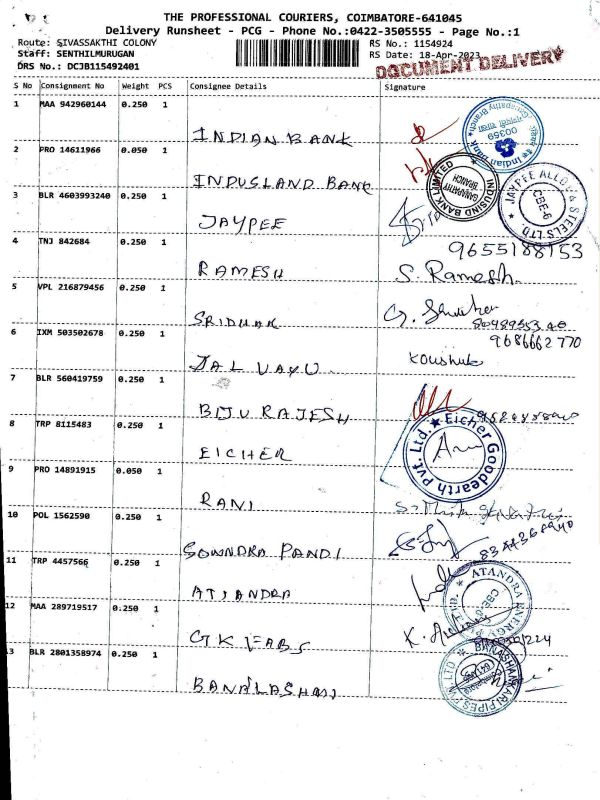 THE PROFESSIONAL COURIERS, COIMBATORE-641045
Delivery Runsheet - PCG - Phone No.:0422-3505555 - Page No.:1
Route: SIVASSAKTHI COLONY
RS No.: 1154924
Staff: SENTHILMURUGAN
RS Date: 18-Apr-2023
DRS No.: DCJB115492401
DOCUMENT DELIVERY
S No Consignment No Weight PCS Consignee Details Signature
1 MAA 942960144 0.250 1
INDIAN BANK
Indian Bank
00359
Ganapathy Branch
2 PRO 14611966 0.050 1
INDUSLAND BANK
INDUSIND BANK LIMITED
GANAPATHY BRANCH
3 BLR 4603993240 0.250 1
JAYPEE
JAYPEE ALLOY & STEELS LTD.
CBE-6
4 TNJ 842684 0.250 1
9655188153
RAMESH S. Ramesh.
5 VPL 216879456 0.250 1
SRIDHAR
6 IXM 503502678 0.250 1
9686662770
JAL VAYU Koushub
7 BLR 560419759 0.250 1
BIJU RAJESH
8 TRP 8115483 0.250 1
EICHER
Eicher Goodearth Pvt. Ltd.
9 PRO 14891915 0.050 1
RANI
10 POL 1562590 0.250 1
SOWNDRA PANDI
11 TRP 4457566 0.250 1
ATJANDRA
ATANDRA ENERGY PVT LTD.
CBE-6
12 MAA 289719517 0.250 1
GK FABS
13 BLR 2801358974 0.250 1
BANALASHMI
BANASHANKARI PIPES PVT. LTD